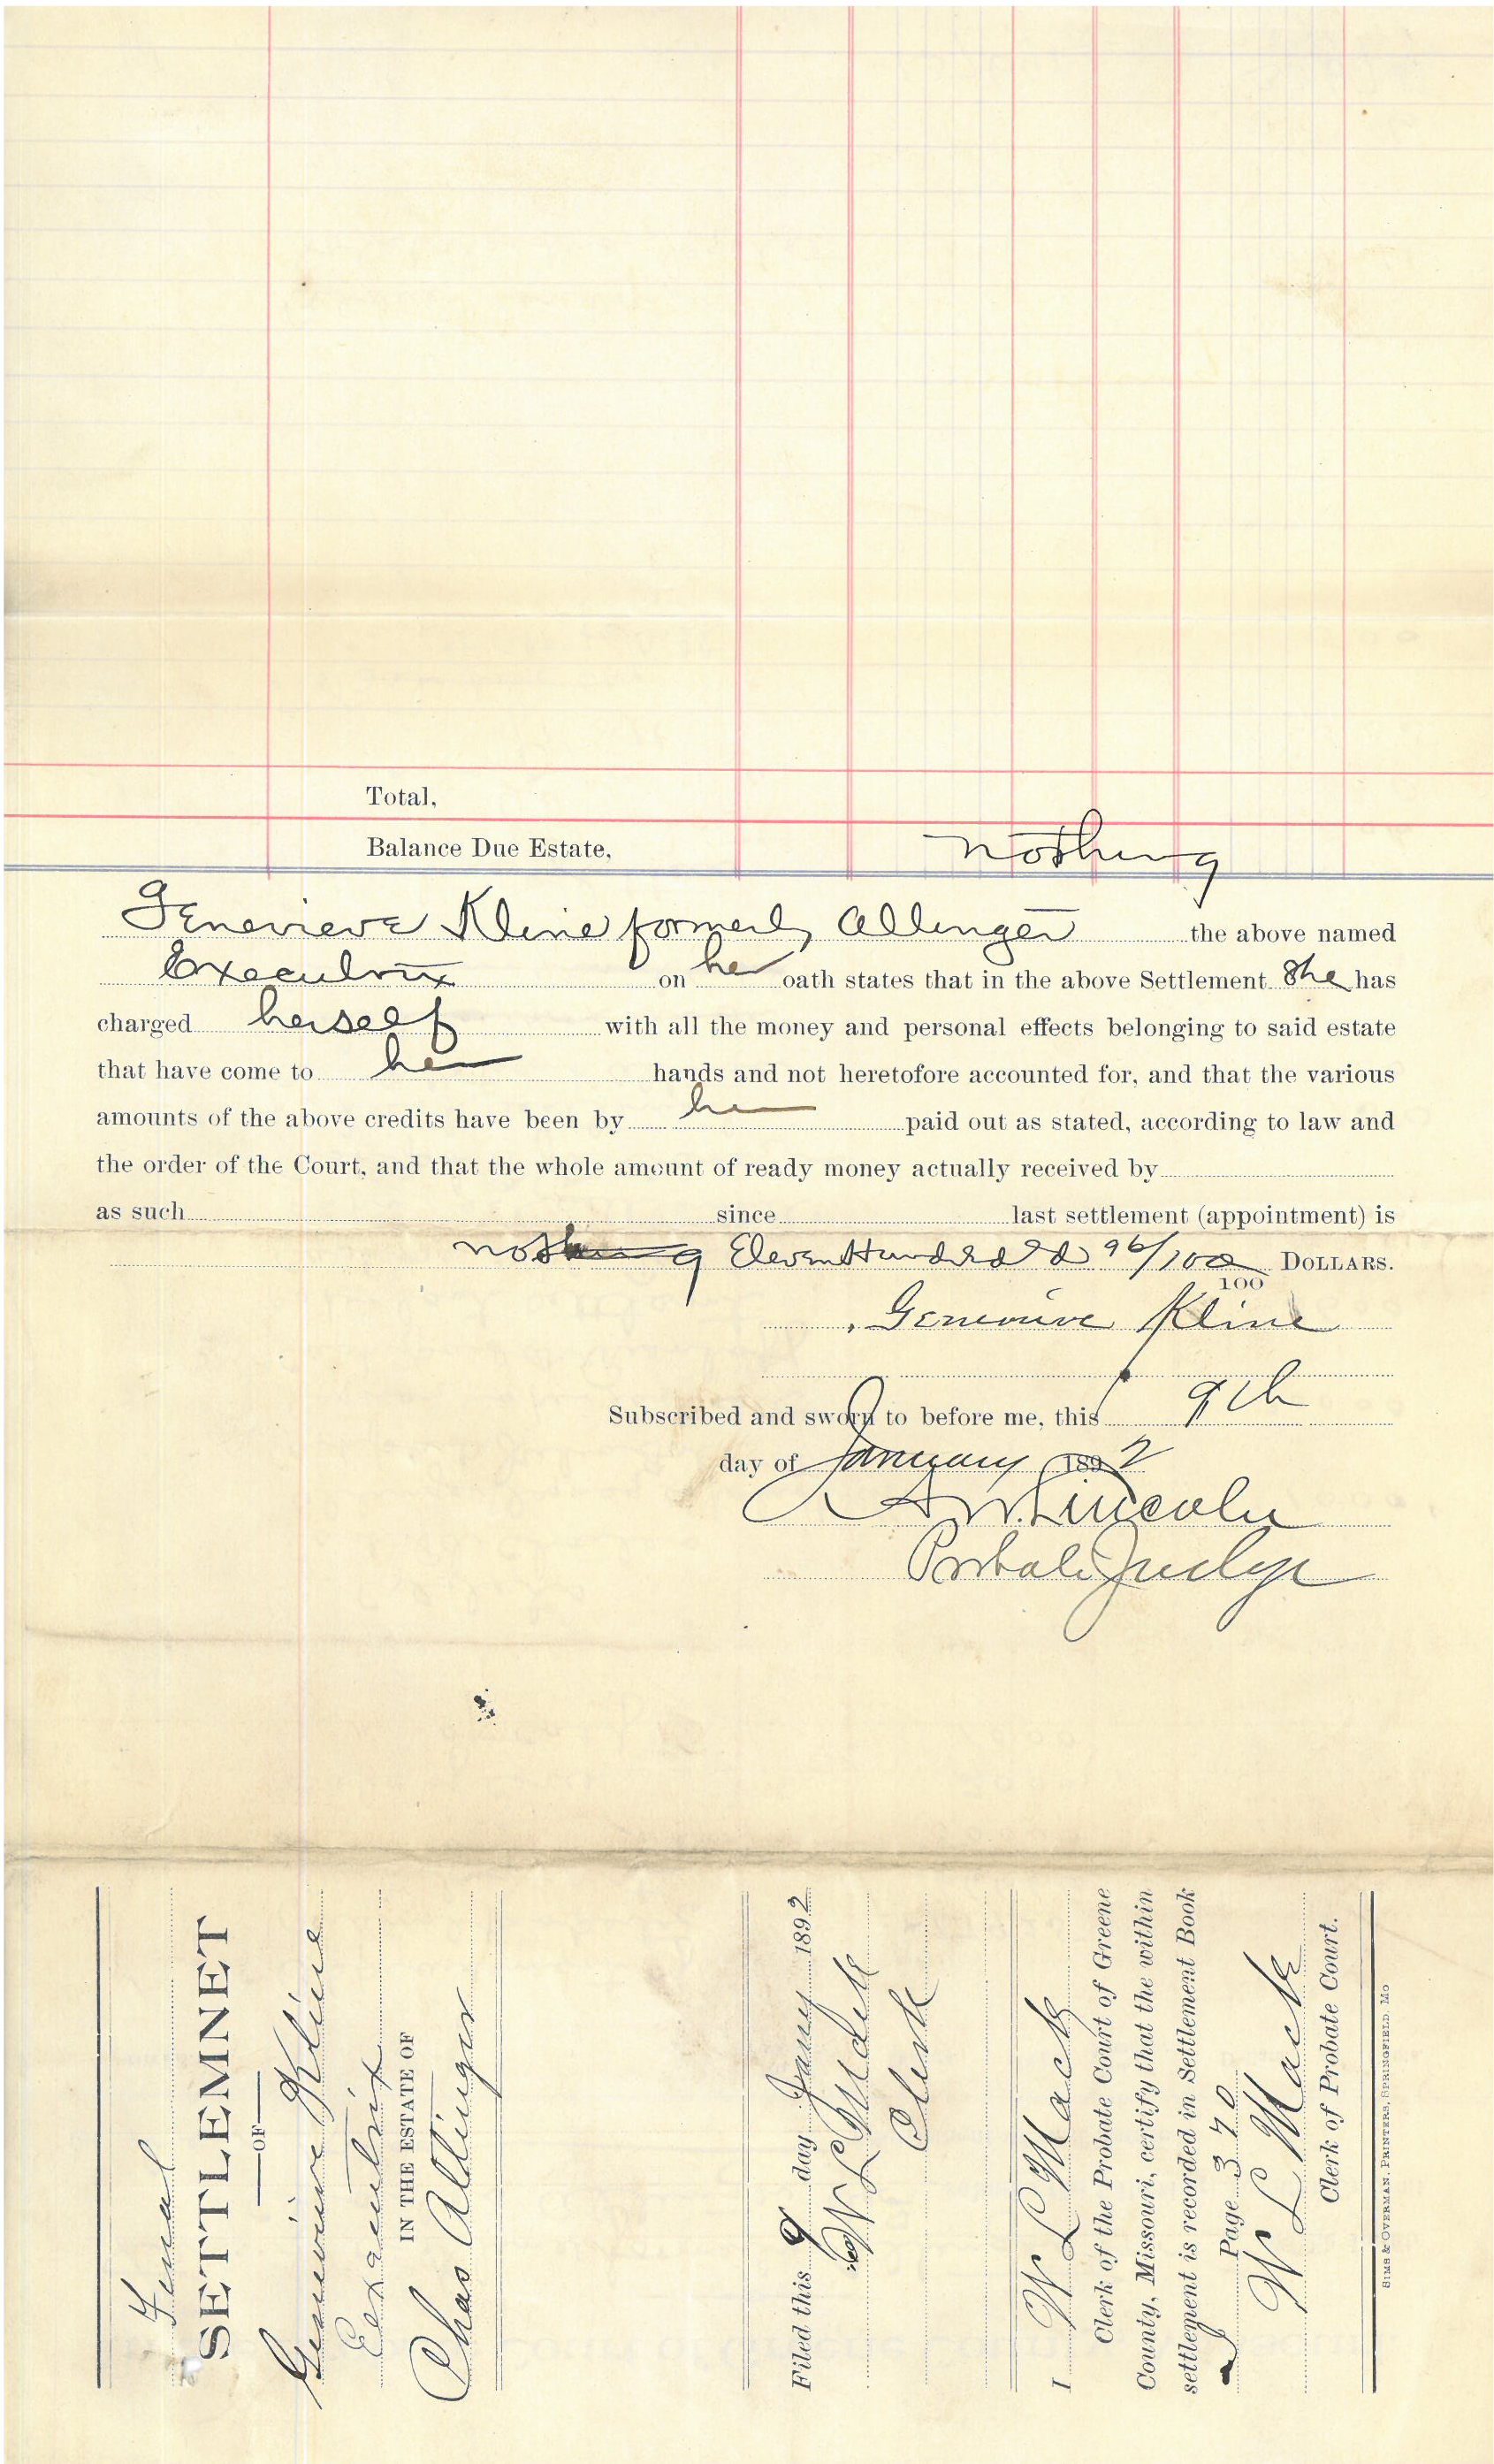 Total,
Balance Due Estate, nothing
Genevieve Kline formerly Allinger the above named
Executrix on her oath states that in the above Settlement She has
charged herself with all the money and personal effects belonging to said estate
that have come to her hands and not heretofore accounted for, and that the various
amounts of the above credits have been by her paid out as stated, according to law and
the order of the Court, and that the whole amount of ready money actually received by
as such since last settlement (appointment) is
nothing Eleven Hundred & 96/100 100 DOLLARS.
Genevieve Kline
Subscribed and sworn to before me, this 9th
day of January 1892
Lincoln
Probate Judge
Final
SETTLEMNET
OF
Genevieve Kline
Executrix
IN THE ESTATE OF
Chas Allinger
Filed this 9 day Jany 1892
W L
Clerk
I W L Mack
Clerk of the Probate Court of Greene
County, Missouri, certify that the within
settlement is recorded in Settlement Book
Page 370
W L Mack
Clerk of Probate Court.
SIMS & OVERMAN, PRINTERS, SPRINGFIELD, MO